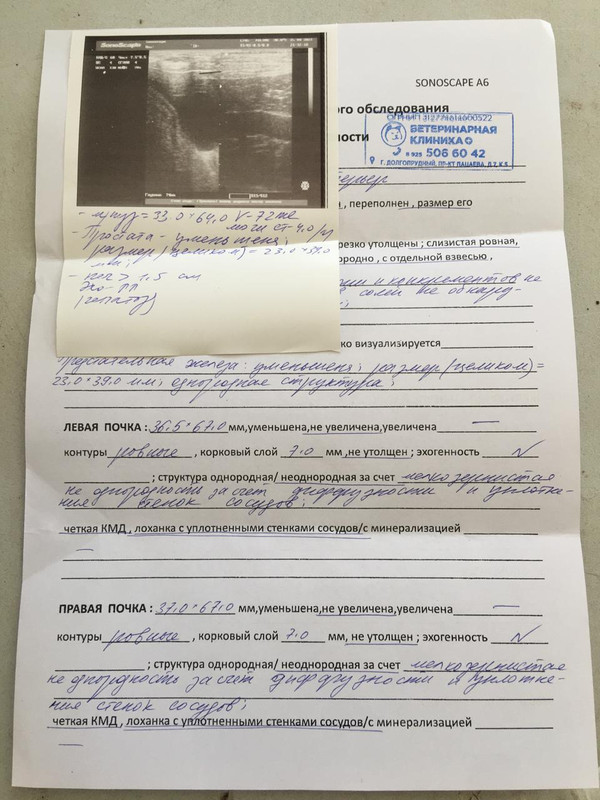 SonoScape
SONOSCAPE A6
ого обследования
ОГРНИП 312774611600522
ВЕТЕРИНАРНАЯ
КЛИНИКА
8 925 506 60 42
Г. ДОЛГОПРУДНЫЙ, ПР-КТ ПАЦАЕВА, Д.7, К.5
ности
терьер
, переполнен , размер его
- м/пуз = 33.0*64.0 V-72 мл
мочи ст-4.0
- Простата - уменьшена;
размер (целиком) = 23.0*39.0
мм;
- печ > 1.5 см
эхо-пл
(гепатоз)
резко утолщены ; слизистая ровная,
ородно , с отдельной взвесью ,
и конкрементов не
солей не обнару-
ко визуализируется
Предстательная железа: уменьшена; размер (целиком) =
23.0*39.0 мм; однородная структура;
ЛЕВАЯ ПОЧКА : 36.5*67.0 мм,уменьшена,не увеличена,увеличена —
контуры ровные , корковый слой 7.0 мм ,не утолщен ; эхогенность N
; структура однородная/ неоднородная за счет мелкозернистая
неоднородность за счет диффузности и уплотне-
ния стенок сосудов;
четкая КМД , лоханка с уплотненными стенками сосудов/с минерализацией
—
ПРАВАЯ ПОЧКА : 37.0*67.0 мм,уменьшена,не увеличена,увеличена —
контуры ровные , корковый слой 7.0 мм, не утолщен ; эхогенность N
; структура однородная/ неоднородная за счет мелкозернистая
неоднородность за счет диффузности и уплотне-
ния стенок сосудов;
четкая КМД , лоханка с уплотненными стенками сосудов/с минерализацией
—